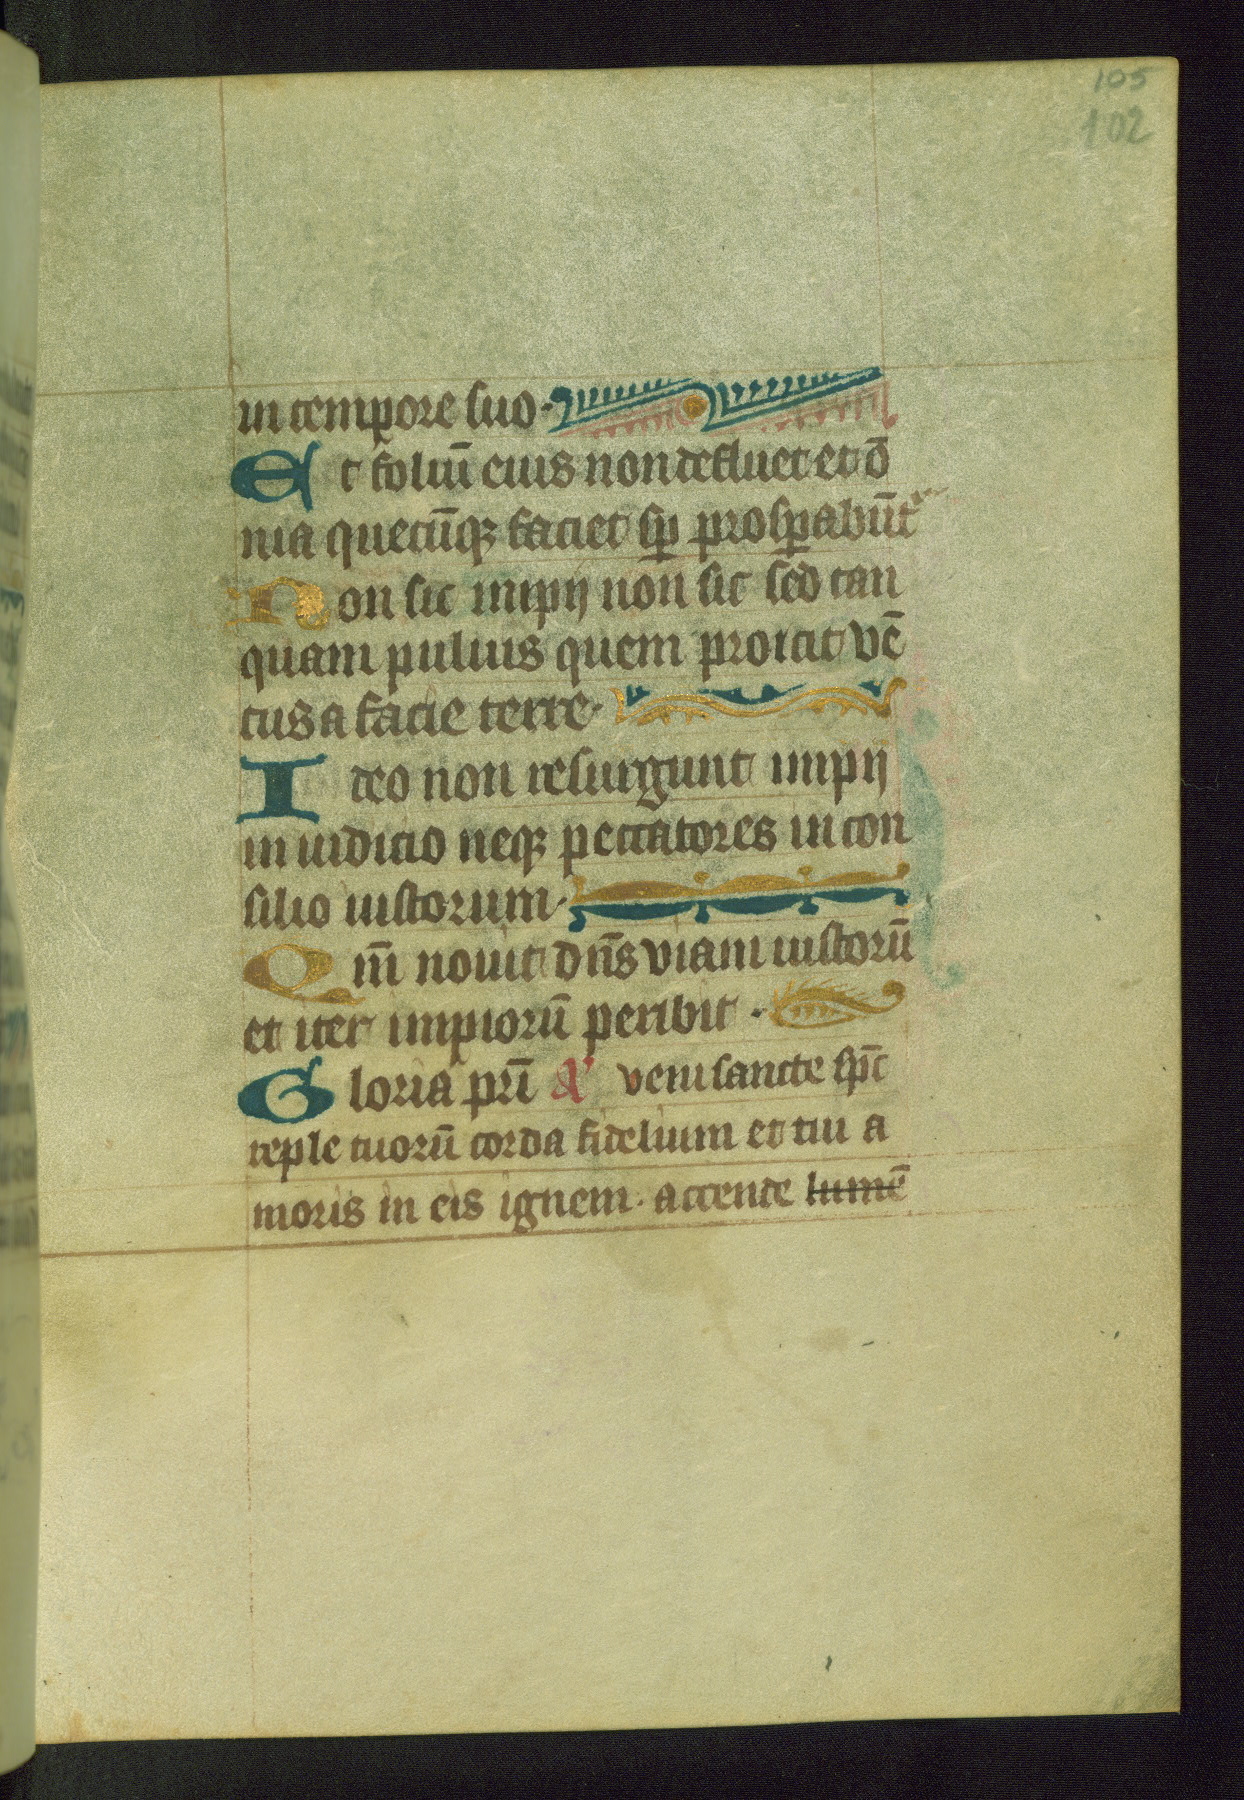 105
102
in tempore suo·
Et foliū eius non defluet et o̅
nia quecūqꝫ faciet sp̱ prosꝑabūt᷑
Non sic impij non sic sed tan
quam puluis quem proicit vē
tus a facie terre·
Ideo non resurgunt impij
in iudicio neqꝫ peccatores in con
silio iustorum·
Qm̅ nouit dn̅s viam iustorū
et iter impiorū peribit·
Gloria pr̅i A᷑ veni sancte sp̅c
reple tuorū corda fidelium et tui a
moris in eis ignem· accende lumē